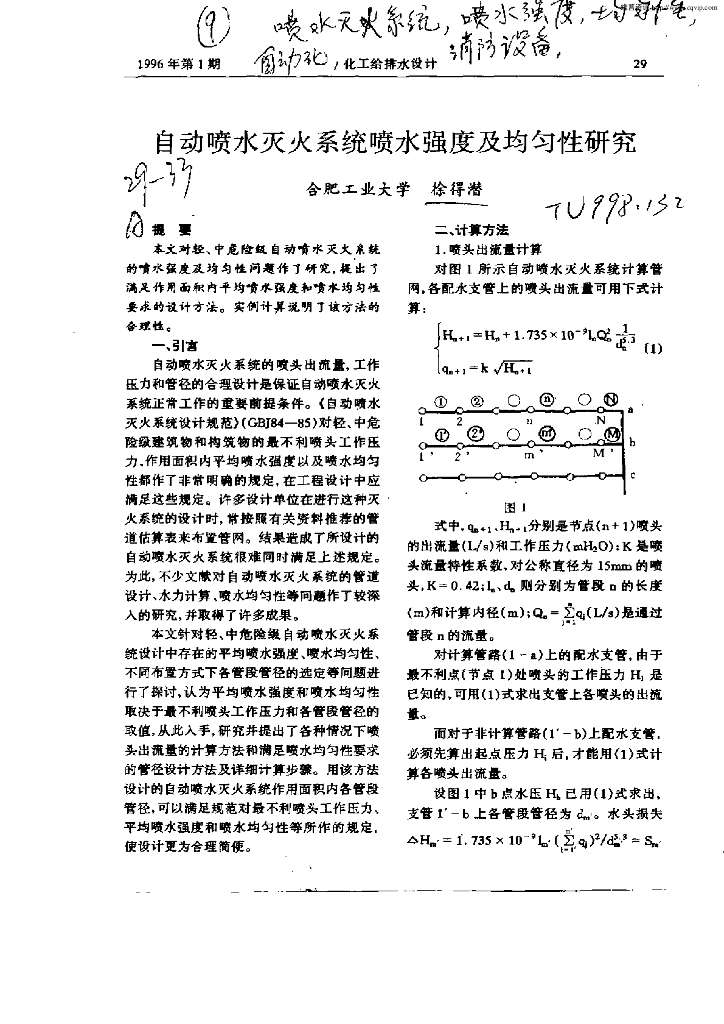 (9) 喷水灭火系统, 喷水强度, 均匀性,
自动化, 消防设备,
1996年第1期 化工给排水设计 29
自动喷水灭火系统喷水强度及均匀性研究
29-33
合肥工业大学 徐得潜
TU998.132
提 要
本文对轻、中危险级自动喷水灭火系统
的喷水强度及均匀性问题作了研究,提出了
满足作用面积内平均喷水强度和喷水均匀性
要求的设计方法。实例计算说明了该方法的
合理性。
一、引言
自动喷水灭火系统的喷头出流量,工作
压力和管径的合理设计是保证自动喷水灭火
系统正常工作的重要前提条件。《自动喷水
灭火系统设计规范》(GBJ84—85)对轻、中危
险级建筑物和构筑物的最不利喷头工作压
力,作用面积内平均喷水强度以及喷水均匀
性都作了非常明确的规定,在工程设计中应
满足这些规定。许多设计单位在进行这种灭
火系统的设计时,常按照有关资料推荐的管
道估算表来布置管网。结果造成了所设计的
自动喷水灭火系统很难同时满足上述规定。
为此,不少文献对自动喷水灭火系统的管道
设计、水力计算、喷水均匀性等问题作了较深
入的研究,并取得了许多成果。
本文针对轻、中危险级自动喷水灭火系
统设计中存在的平均喷水强度、喷水均匀性、
不同布置方式下各管段管径的选定等问题进
行了探讨,认为平均喷水强度和喷水均匀性
取决于最不利喷头工作压力和各管段管径的
取值,从此入手,研究并提出了各种情况下喷
头出流量的计算方法和满足喷水均匀性要求
的管径设计方法及详细计算步骤。用该方法
设计的自动喷水灭火系统作用面积内各管段
管径,可以满足规范对最不利喷头工作压力、
平均喷水强度和喷水均匀性等所作的规定,
使设计更为合理简便。
二、计算方法
1.喷头出流量计算
对图1所示自动喷水灭火系统计算管
网,各配水支管上的喷头出流量可用下式计
算:
H_{n+1}=H_n+1.735×10^{-9}l_nQ_n^2 1/d_n^{5.3}
q_{n+1}=k√H_{n+1} (1)
① ② ○ ⓝ ○ Ⓝ a
1 2 n N
①' ②' ○ ⓜ' ○ Ⓜ' b
1' 2' m' M'
c
图1
式中,q_{n+1}、H_{n+1}分别是节点(n+1)喷头
的出流量(L/s)和工作压力(mH₂O);K是喷
头流量特性系数,对公称直径为15mm的喷
头,K=0.42;l_n、d_n则分别为管段n的长度
(m)和计算内径(m);Q_n=∑_{j=1}^{n}q_j(L/s)是通过
管段n的流量。
对计算管路(1-a)上的配水支管,由于
最不利点(节点1)处喷头的工作压力H₁是
已知的,可用(1)式求出支管上各喷头的出流
量。
而对于非计算管路(1′-b)上配水支管,
必须先算出起点压力H₁′后,才能用(1)式计
算各喷头出流量。
设图1中b点水压H_b已用(1)式求出,
支管1′-b上各管段管径为d_{m′}。水头损失
△H_{m′}=1.735×10^{-9}l_{m′}(∑q_j)²/d_{m′}^{5.3}=S_{m′}